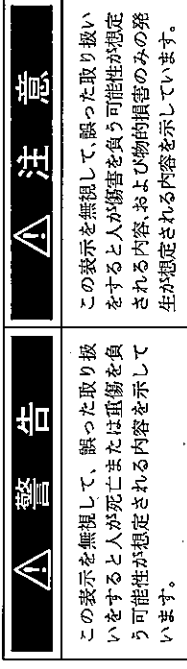 ⚠ 警告
この表示を無視して、誤った取り扱
いをすると人が死亡または重傷を負
う可能性が想定される内容を示して
います。
⚠ 注意
この表示を無視して、誤った取り扱い
をすると人が傷害を負う可能性が想定
される内容、および物的損害のみの発
生が想定される内容を示しています。